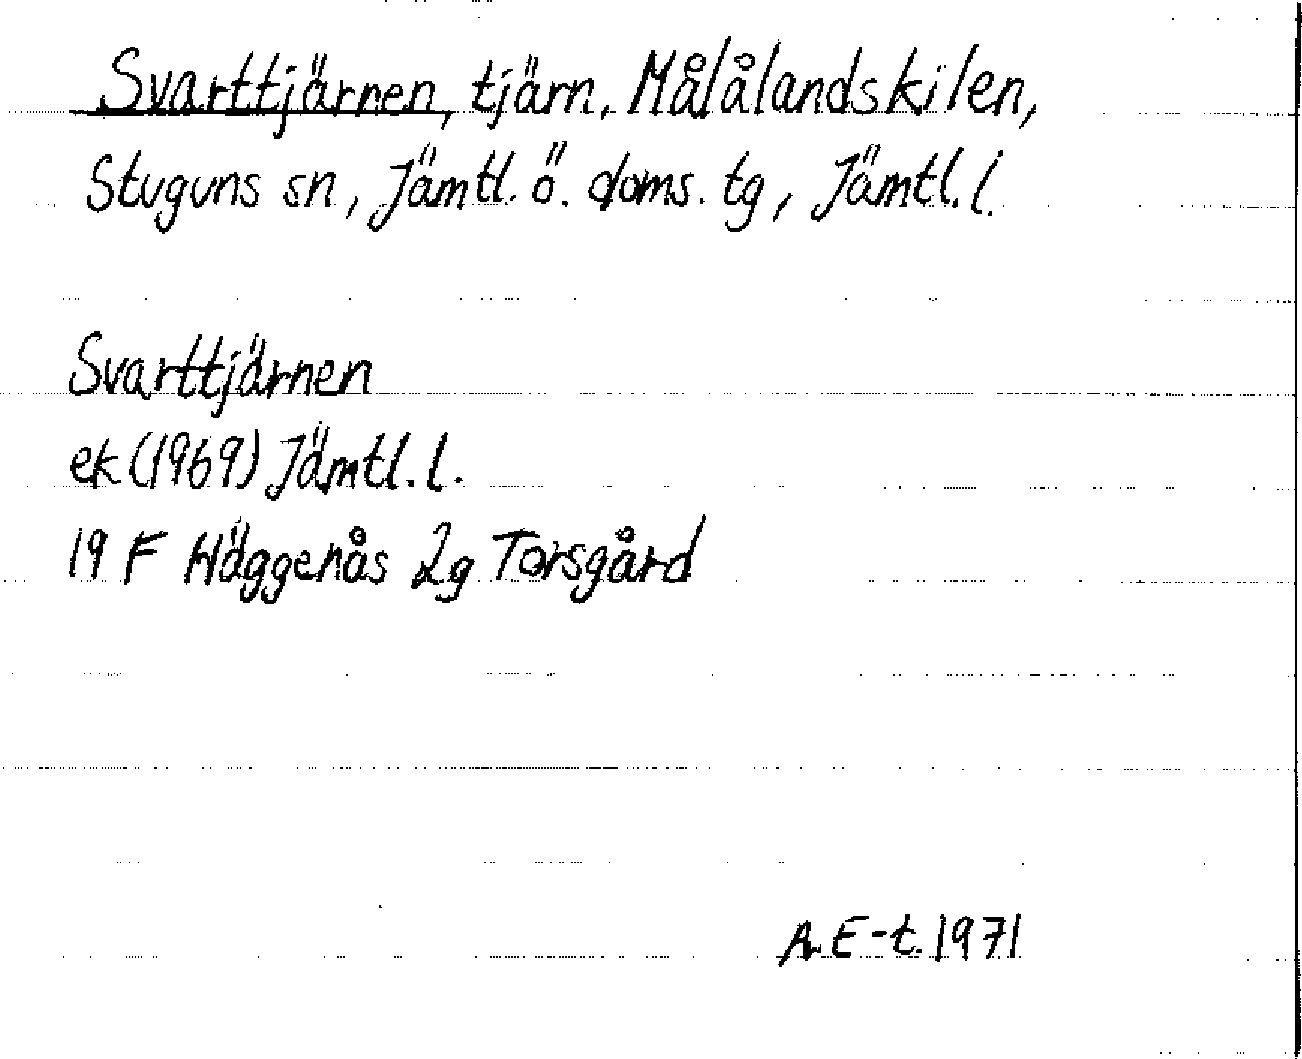 Svarttjärnen, tjärn, Målålandskilen,
Stuguns sn, Jämtl. ö. doms. tg, Jämtl. l.
Svarttjärnen
ek (1969) Jämtl. l.
19 F Häggenås 2g Torsgård
A. E-t. 1971